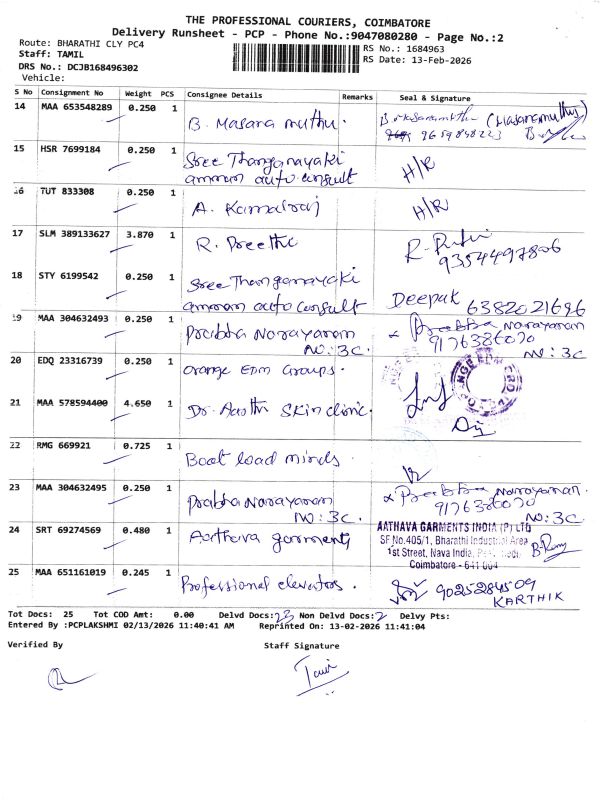 THE PROFESSIONAL COURIERS, COIMBATORE
Delivery Runsheet - PCP - Phone No.:9047080280 - Page No.:2
Route: BHARATHI CLY PC4
RS No.: 1684963
Staff: TAMIL
RS Date: 13-Feb-2026
DRS No.: DCJB168496302
Vehicle:
S No Consignment No Weight PCS Consignee Details Remarks Seal & Signature
14 MAA 653548289 0.250 1 B. Masana muthu. (Masanamuthu)
9659848223
15 HSR 7699184 0.250 1 Sree Thanganayaki
amman auto consult H/R
16 TUT 833308 0.250 1 A. Kamalraj H/R
17 SLM 389133627 3.870 1 R. Preethi
9354497806
18 STY 6199542 0.250 1 Sree Thanganayaki
amman auto consult Deepak 6382021696
19 MAA 304632493 0.250 1 Prabha Narayanan Prabha Narayanan
NO: 3C. 9176386070
NO: 3C
20 EDQ 23316739 0.250 1 orange EDM Groups.
21 MAA 578594400 4.650 1 Dr. Aasthi Skin clinic.
22 RMG 669921 0.725 1 Boat load minds
23 MAA 304632495 0.250 1 Prabha Narayanan Prabha Narayanan.
NO: 3C. 9176386070
NO: 3C
24 SRT 69274569 0.480 1 Aathava garments
AATHAVA GARMENTS INDIA (P) LTD
SF No.405/1, Bharathi Industrial Area
1st Street, Nava India,
Coimbatore - 641 004
25 MAA 651161019 0.245 1 Professional elevators. 9025284509
KARTHIK
Tot Docs: 25 Tot COD Amt: 0.00 Delvd Docs: 23 Non Delvd Docs: 2 Delvy Pts:
Entered By :PCPLAKSHMI 02/13/2026 11:40:41 AM Reprinted On: 13-02-2026 11:41:04
Verified By Staff Signature